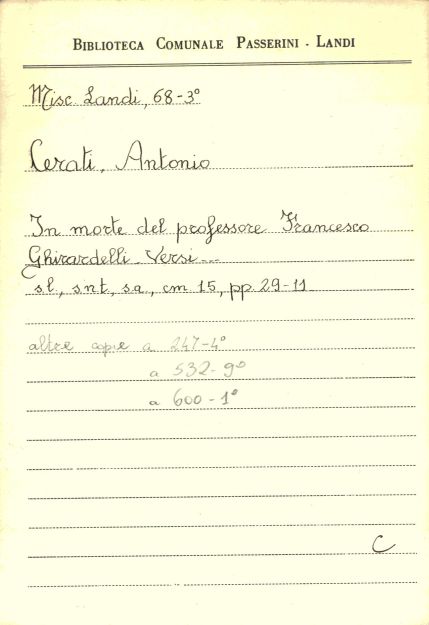 BIBLIOTECA COMUNALE PASSERINI - LANDI
Misc. Landi, 68-3°
Cerati, Antonio
In morte del professore Francesco
Ghirardelli. Versi...
sl., snt., sa., cm 15, pp. 29-11
altre copie a 247-4°
a 532-9°
a 600-1°
C